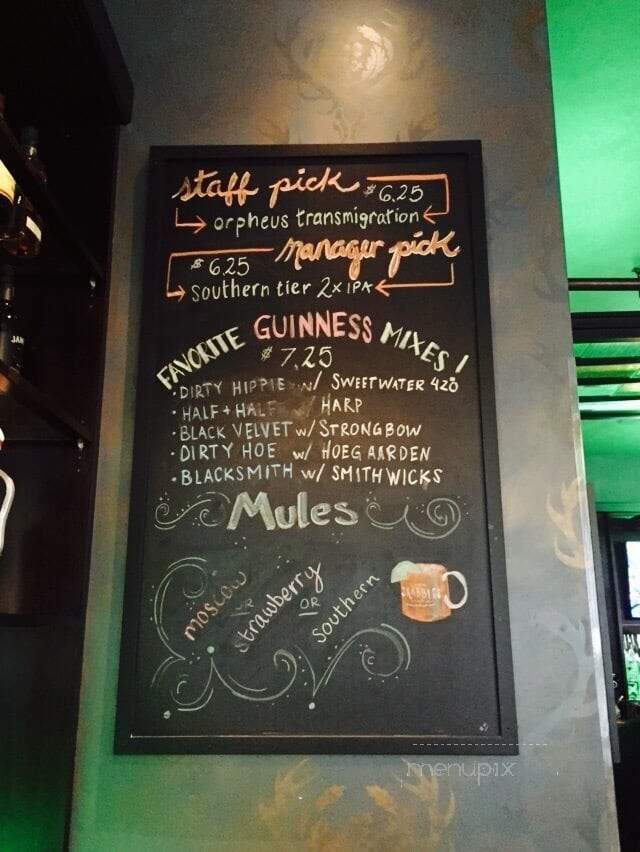 staff pick $6.25
orpheus transmigration
manager pick
$6.25
southern tier 2xIPA
FAVORITE GUINNESS MIXES!
$7.25
• DIRTY HIPPIE w/ SWEETWATER 420
• HALF + HALF w/ HARP
• BLACK VELVET w/ STRONGBOW
• DIRTY HOE w/ HOEGAARDEN
• BLACKSMITH w/ SMITHWICKS
Mules
moscow OR strawberry OR southern
menupix